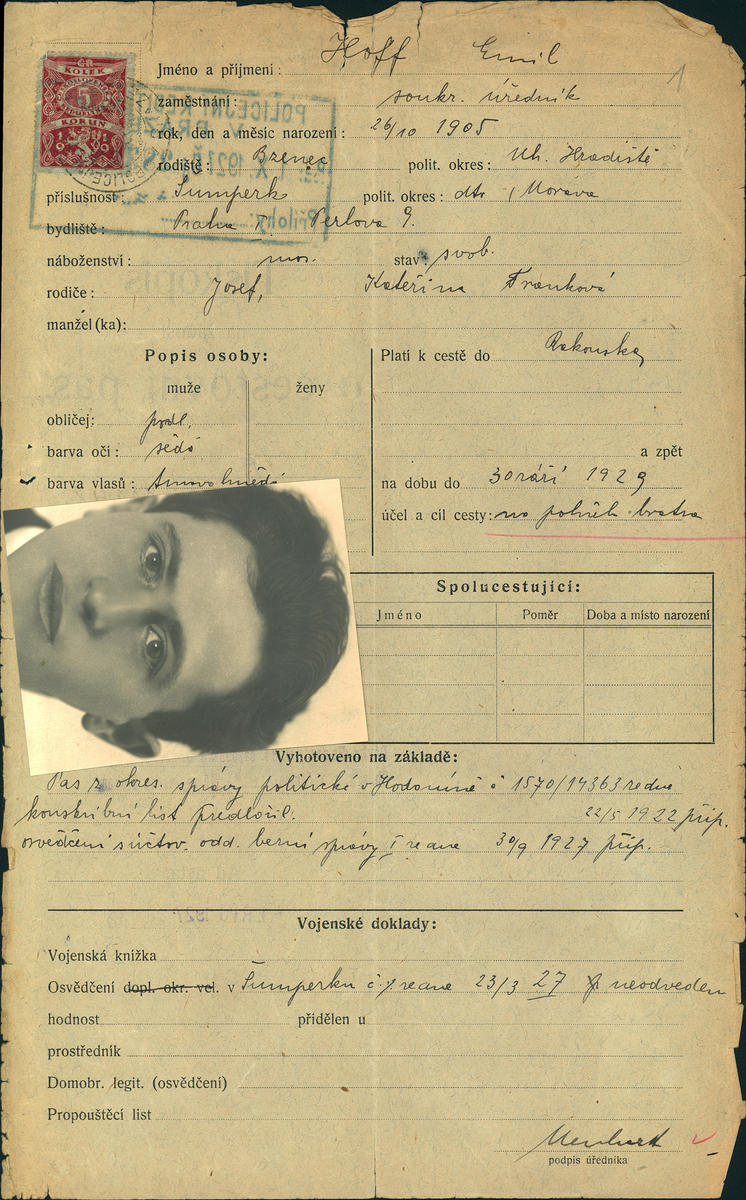 1
Jméno a příjmení: Hoff Emil
zaměstnání: soukr. úředník
rok, den a měsíc narození: 26/10 1905
rodiště: Bzenec polit. okres: Uh. Hradiště
příslušnost: Šumperk polit. okres: dto, Morava
bydliště: Praha I. Perlova 9.
náboženství: mos. stav: svob.
rodiče: Josef, Kateřina Franková
manžel (ka):
ČR
KOLEK
5
KORUN
1919
POLICEJNÍ ŘED
V PRA
X 1927
Přílohy:
Popis osoby:
muže ženy
obličej: podl.
barva očí: šedé
barva vlasů: tmavohnědé
Platí k cestě do Rakouska,
a zpět
na dobu do 30 září 1929
účel a cíl cesty: na pohřeb bratra
Spolucestující:
Jméno Poměr Doba a místo narození
Vyhotoveno na základě:
Pas z okres. správy politické v Hodoníně č 1570/14363 
konskribní list předložil. 22/5 1922 příp.
osvědčení súčtov. odd. berní správy I 30/9 1927 příp.
Vojenské doklady:
Vojenská knížka
Osvědčení dopl. okr. vel. v Šumperku č. 23/3 27 neodveden
hodnost přidělen u
prostředník
Domobr. legit. (osvědčení)
Propouštěcí list
podpis úředníka